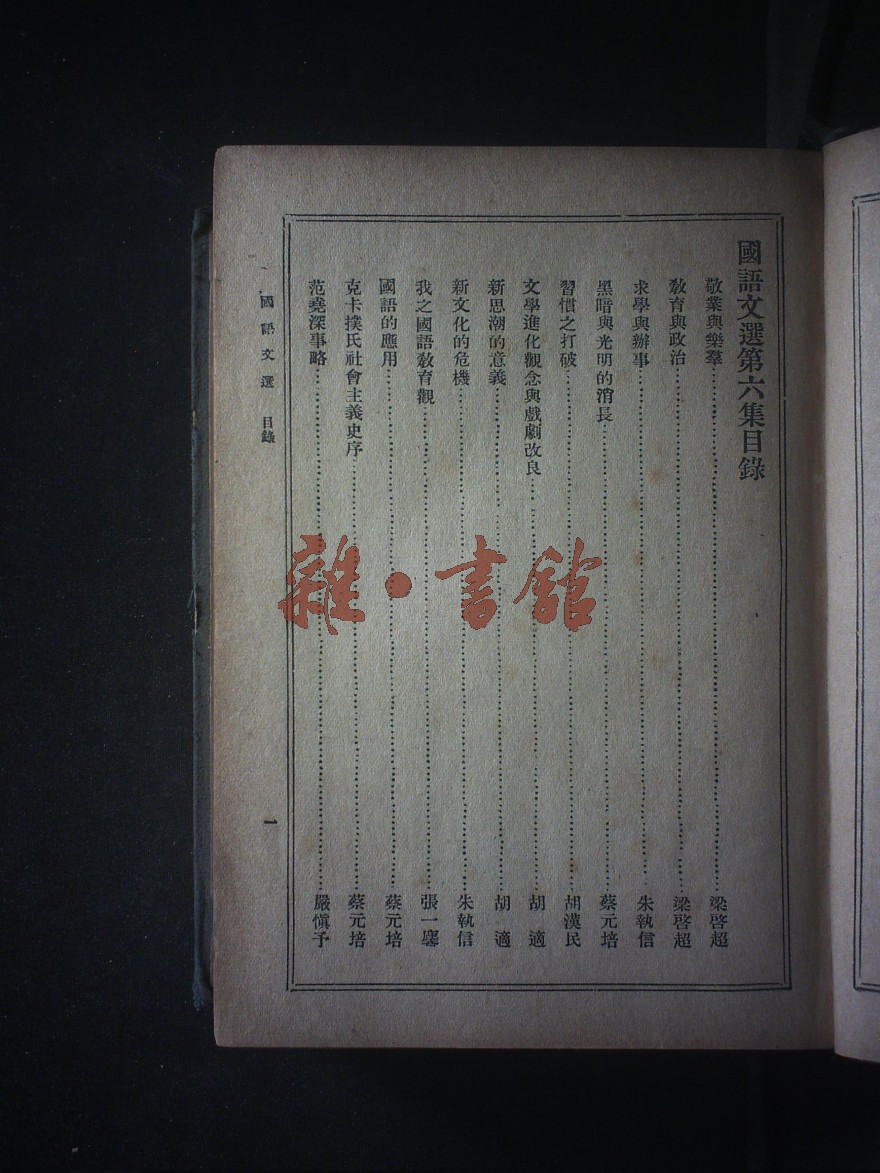 國語文選第六集目錄
敬業與樂羣 梁啓超
敎育與政治 梁啓超
求學與辦事 朱執信
黑暗與光明的消長 蔡元培
習慣之打破 胡漢民
文學進化觀念與戲劇改良 胡適
新思潮的意義 胡適
新文化的危機 朱執信
我之國語敎育觀 張一麐
國語的應用 蔡元培
克卡撲氏社會主義史序 蔡元培
范堯深事略 嚴愼予
國語文選 目錄
一
雜·書館